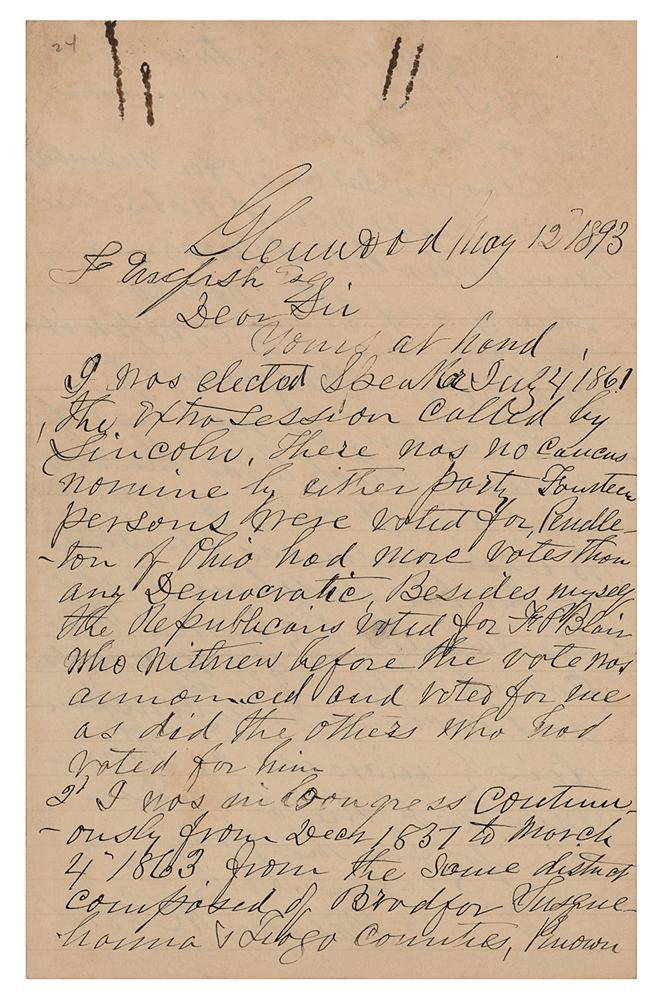 24
Glenwood May 12" 1893
F English Esq
Dear Sir
Yours at hand,
I was elected Speaker July 4, 1861
the extra session called by
Lincoln. There was no caucus
nomine by either party Fourteen
persons were voted for, Pendle-
-ton of Ohio had more votes than
any Democratic. Besides myself
the Republicans voted for F P Blair
who withrew before the vote was
announced and voted for me
as did the others who had
voted for him
2d I was in Congress continu-
-ously from Decr 1851 to March
4" 1863 from the same district
composed of Bradfor Susque-
hanna & Tioga counties, known